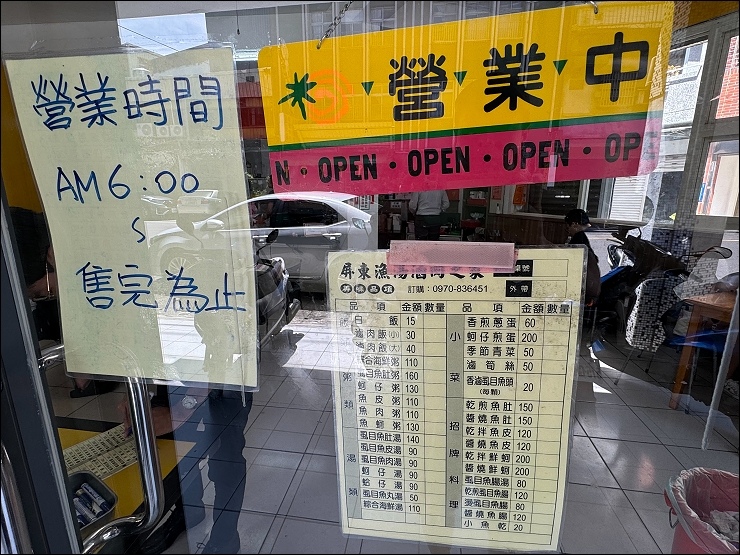 營業時間
AM 6:00
~
售完為止
營業中
N・OPEN・OPEN・OPEN・OPE
屏東漁
訂購:0970-836451
外帶
品項 金額 數量
白飯 15
滷肉飯(小) 30
滷肉飯(大) 40
合海鮮粥 110
虱目魚肚粥 160
蚵仔粥 130
魚皮粥 110
魚肉粥 110
魚鮮粥 130
虱目魚肚湯 140
虱目魚皮湯 90
虱目魚肉湯 90
蚵仔湯 90
蛤仔湯 90
虱目魚丸湯 50
綜合海鮮湯 110
粥類
湯類
品項 金額 數量
香煎蔥蛋 60
蚵仔煎蛋 200
季節青菜 50
滷筍絲 50
香滷虱目魚頭(每顆) 20
乾煎魚肚 150
醬燒魚肚 150
乾拌魚皮 120
醬燒魚皮 120
乾拌鮮蚵 200
醬燒鮮蚵 200
虱目魚腸湯 80
乾煎虱目魚腸 120
燙虱目魚腸 80
醬燒魚腸 120
小魚乾 20
小菜
招牌料理